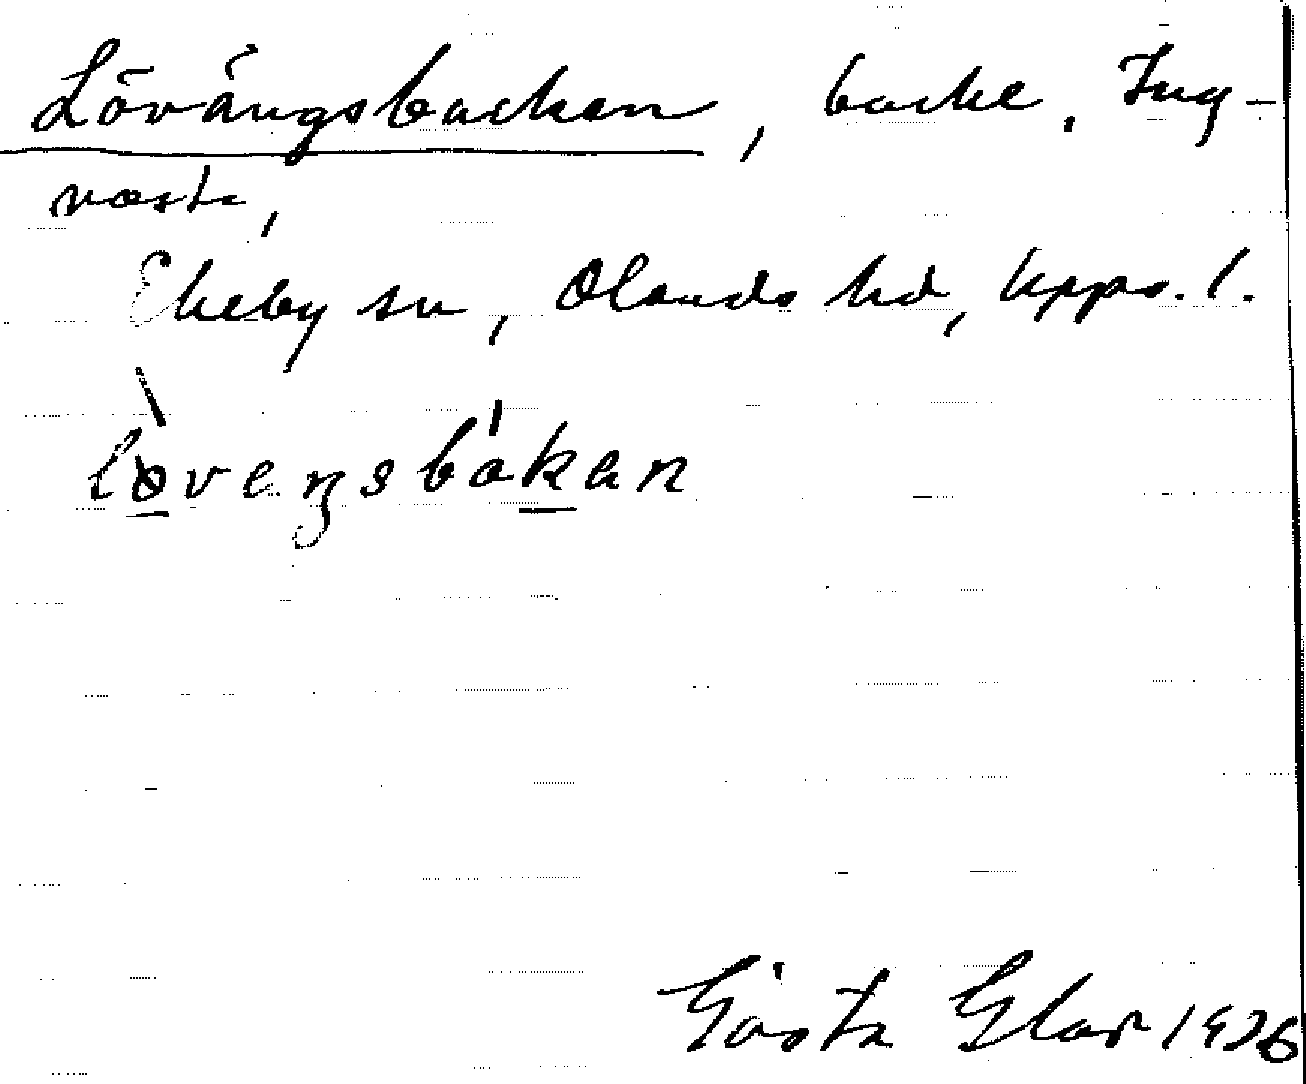 Lövängsbacken, backe, Ing-
vasta,
Ekeby sn, Olands hd, Upps. l.
lòveŋsbákan
Gösta